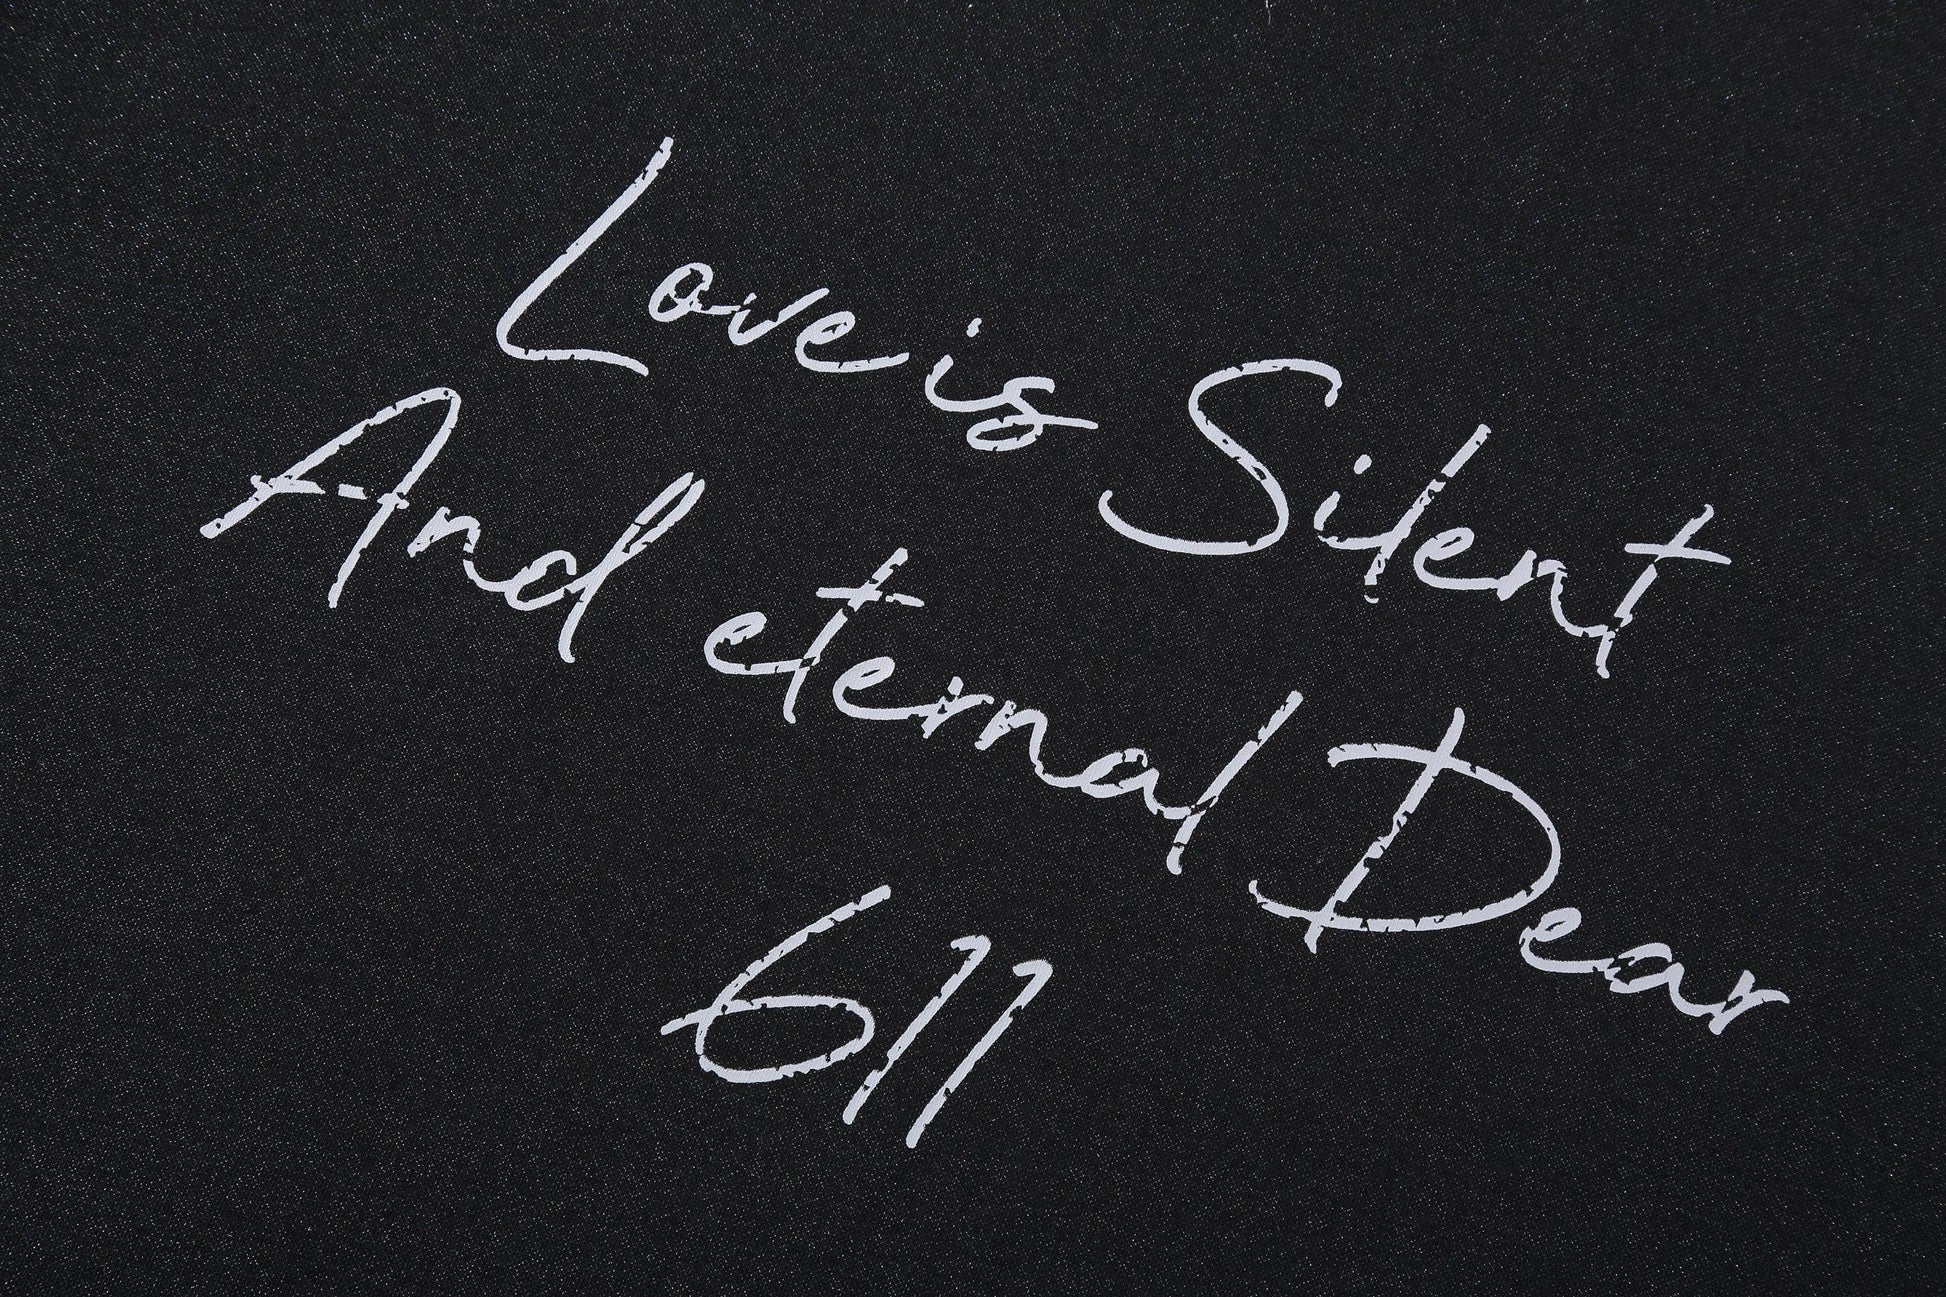 Love is Silent
And eternal Dear
611